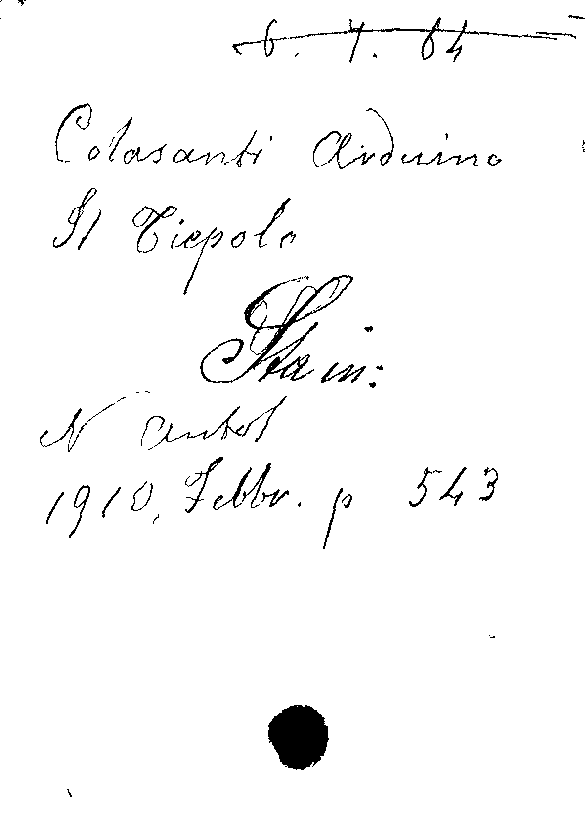 6. 4. 64
Colasanti Arduino
Il Tiepolo
Sta in:
N Antol
1910, Febbr. p 543